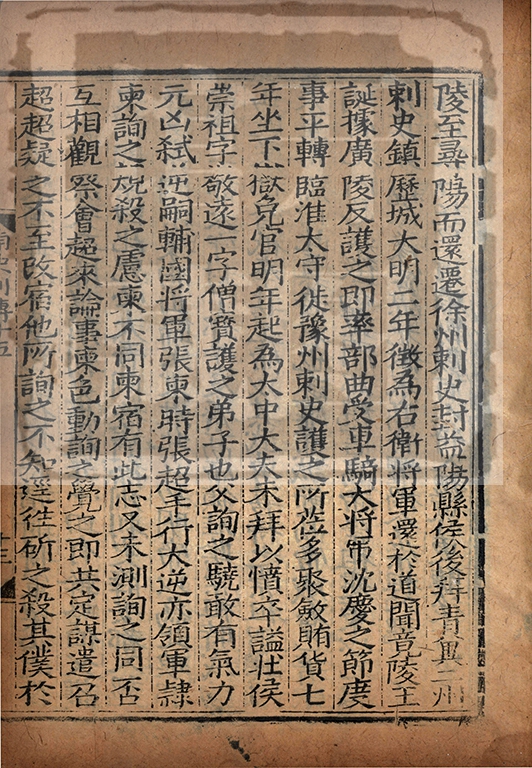 陵至尋陽而還遷徐州刺史封益陽縣侯後拜青冀二州
刺史鎮歷城大明二年徵為右衛將軍還於道聞竟陵王
誕據廣陵反護之即率部曲受車騎大將軍沈慶之節度
事平轉臨淮太守徙豫州刺史護之所莅多聚斂賄貨七
年坐下獄免官明年起為太中大夫未拜以憤卒謚壯侯
崇祖字敬遠一字僧寶護之弟子也父詢之驍敢有氣力
元凶弒逆嗣輔國將軍張柬時張超手行大逆亦領軍隸
柬詢之規殺之慮柬不同柬宿有此志又未測詢之同否
互相觀察會超來論事柬色動詢之覺之即共定謀遣召
超超疑之不至改宿他所詢之不知逕往斫之殺其僕於